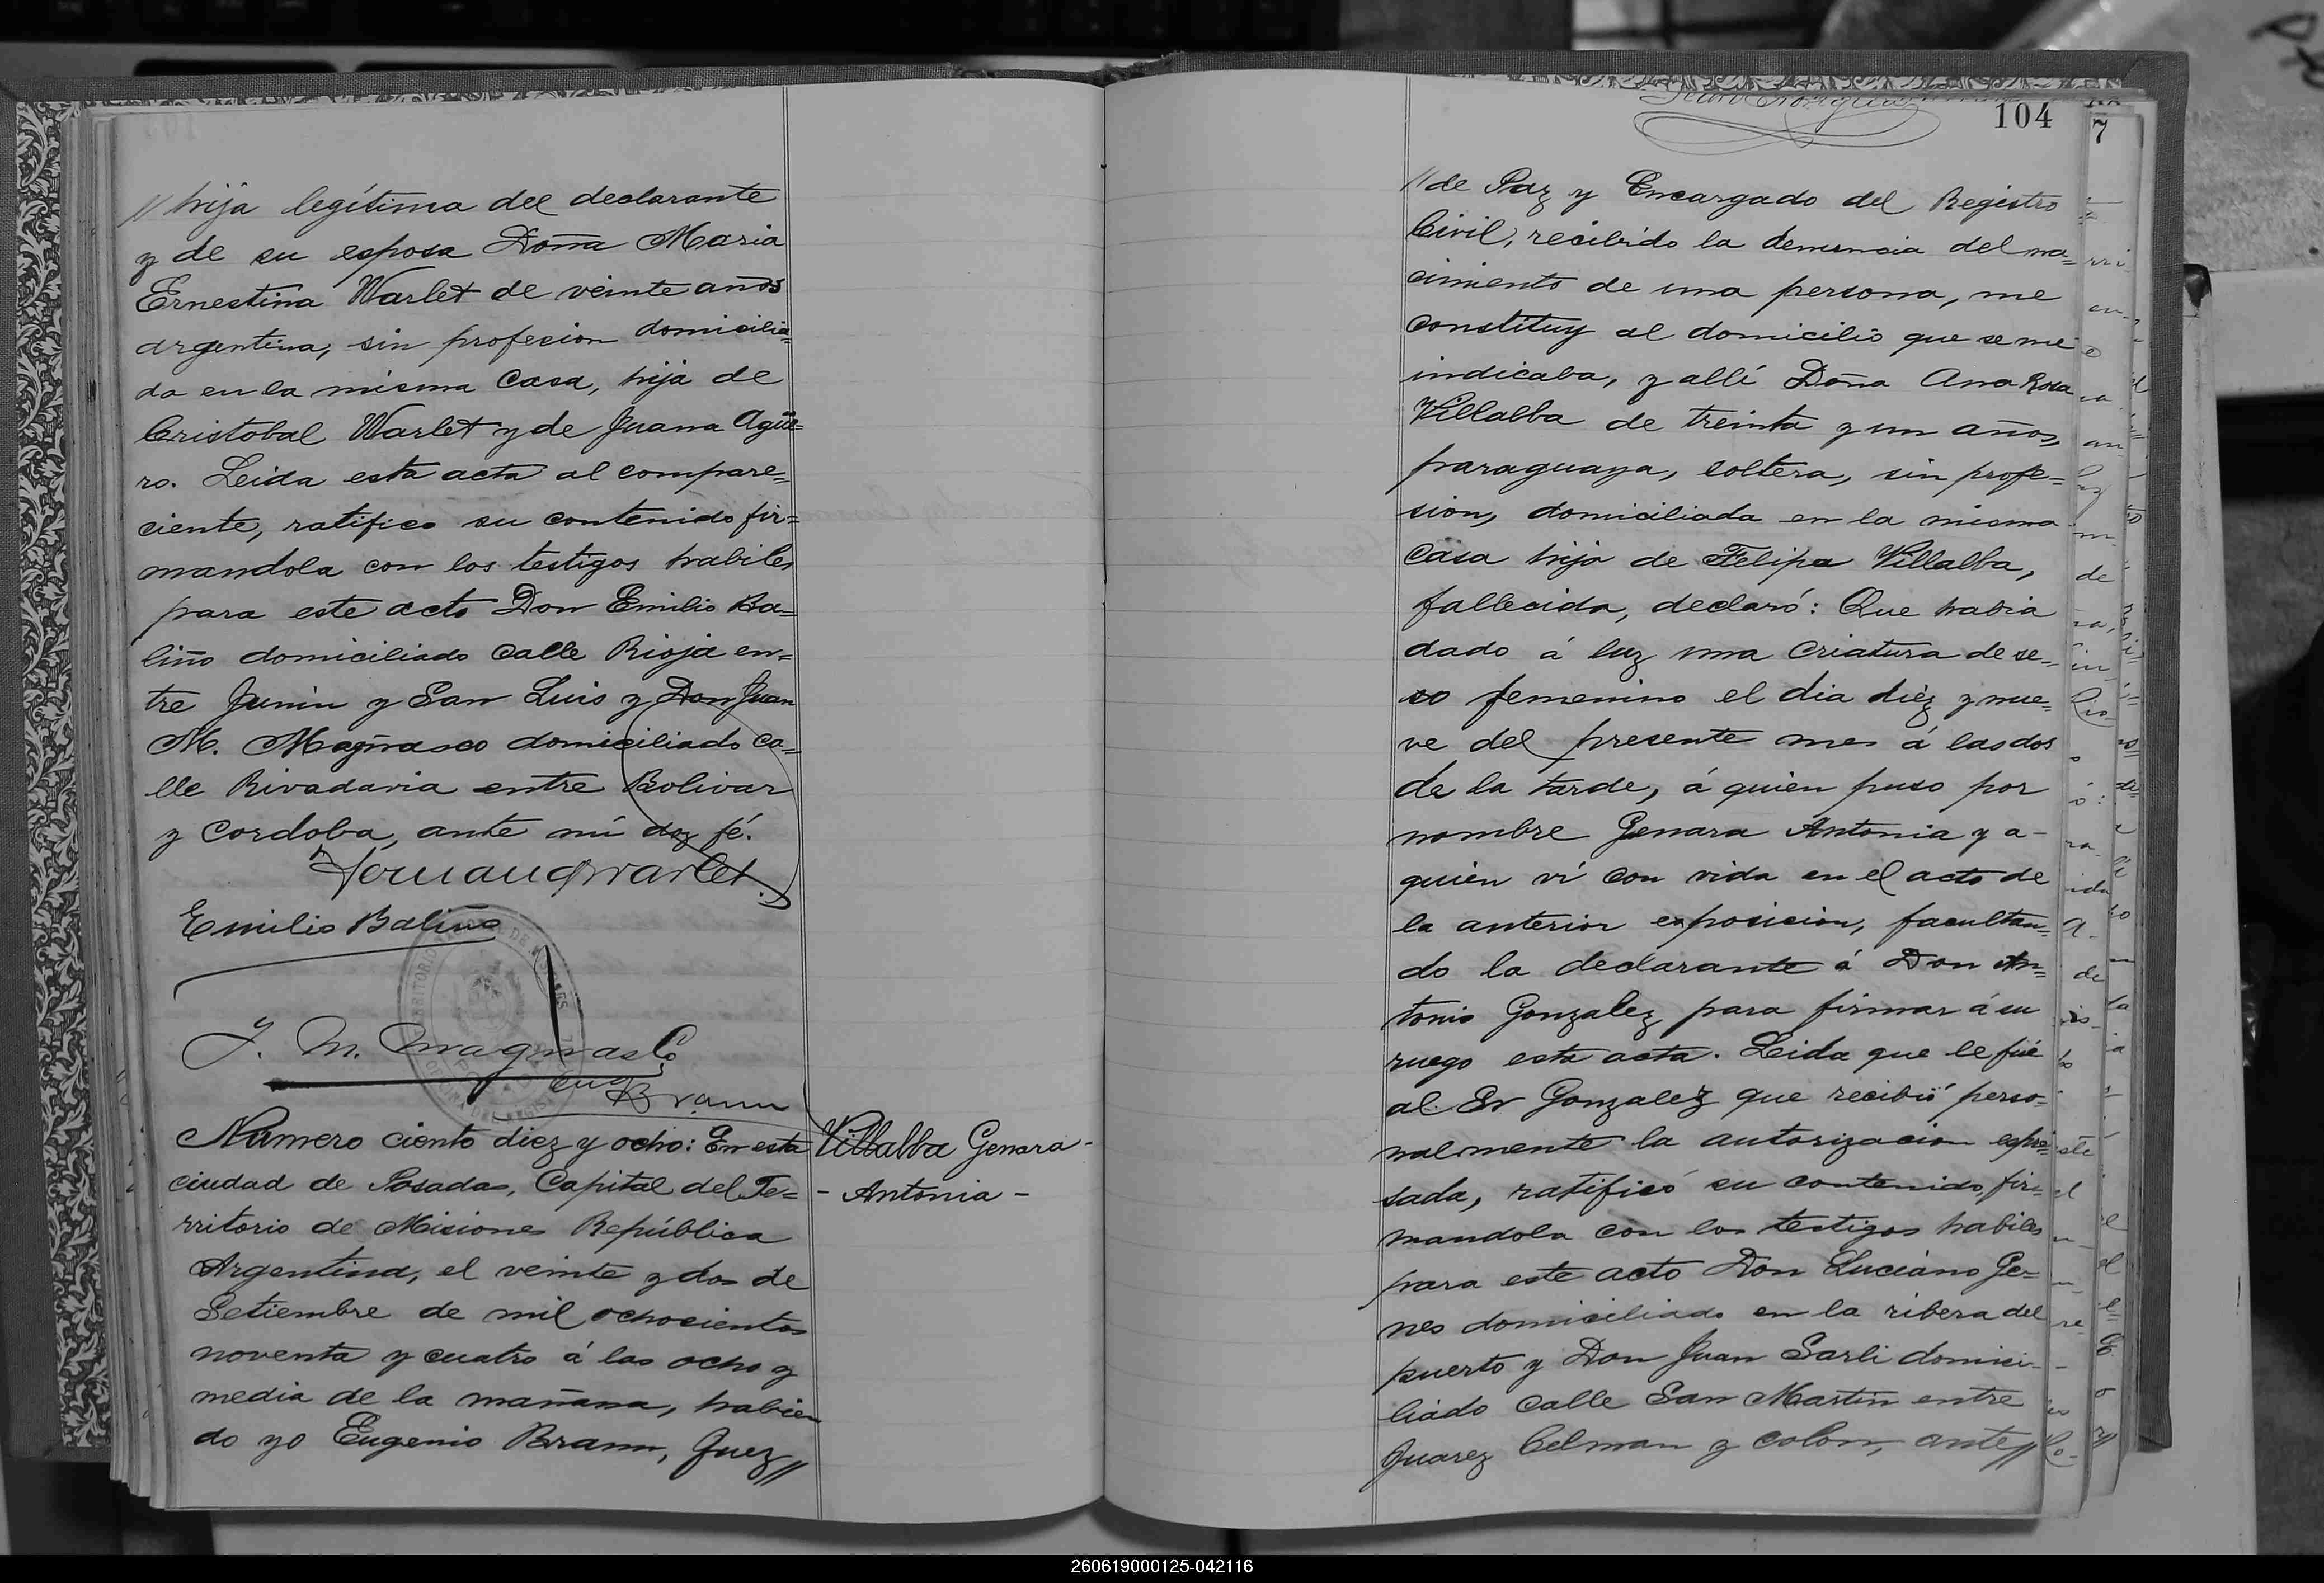 // hija legítima del declarante
y de su esposa Doña Maria
Ernestina Warlet de veinte años
argentina, sin profesion domicilia=
da en la misma Casa, hija de
Cristobal Warlet y de Juana Agüe=
ro. Leida esta acta al compare=
ciente, ratifico su contenido fir=
mandola con los testigos habiles
para este acto Don Emilio Ba=
liño domiciliado Calle Rioja en=
tre Junin y San Luis y Don Juan
M. Magnasco domiciliado ca=
lle Rivadavia entre Bolivar
y Cordoba, ante mí doy fé.
Emilio Baliño
J. M. Magnasco
Eug Brann
Número ciento diez y ocho: En esta
ciudad de Posadas, Capital del Te=
rritorio de Misiones República
Argentina, el veinte y dos de
Setiembre de mil ochocientos
noventa y cuatro á las ocho y
media de la mañana, habien
do yo Eugenio Brann, Juez //
Villalba Genara -
- Antonia -
104
7
// de Paz y Encargado del Registro
Civil, recibido la denuncia del na=
cimiento de una persona, me
constituy al domicilio que se me
indicaba, y allí Doña Ana Rosa
Villalba de treinta y un años,
paraguaya, soltera, sin profe=
sion, domiciliada en la misma
Casa hija de Felipa Villalba,
fallecida, declaró: Que habia
dado á luz una Criatura de se=
xo femenino el dia diéz y nue=
ve del presente mes á las dos
de la tarde, á quien puso por
nombre Genara Antonia y a-
quien ví con vida en el acto de
la anterior exposicion, facultan=
do la declarante á Don An=
tonio Gonzalez para firmar á su
ruego esta acta. Leida que le fué
al Sr Gonzalez que recibió perso=
nalmente la autorizacion espre=
sada, ratificó su contenido, fir=
mandola con los testigos habiles
para este acto Don Luciano Ge=
nes domiciliado en la ribera del
puerto y Don Juan Sarli domici-
liado Calle San Martin entre
Juarez Celman y Colon, ante //
260619000125-042116